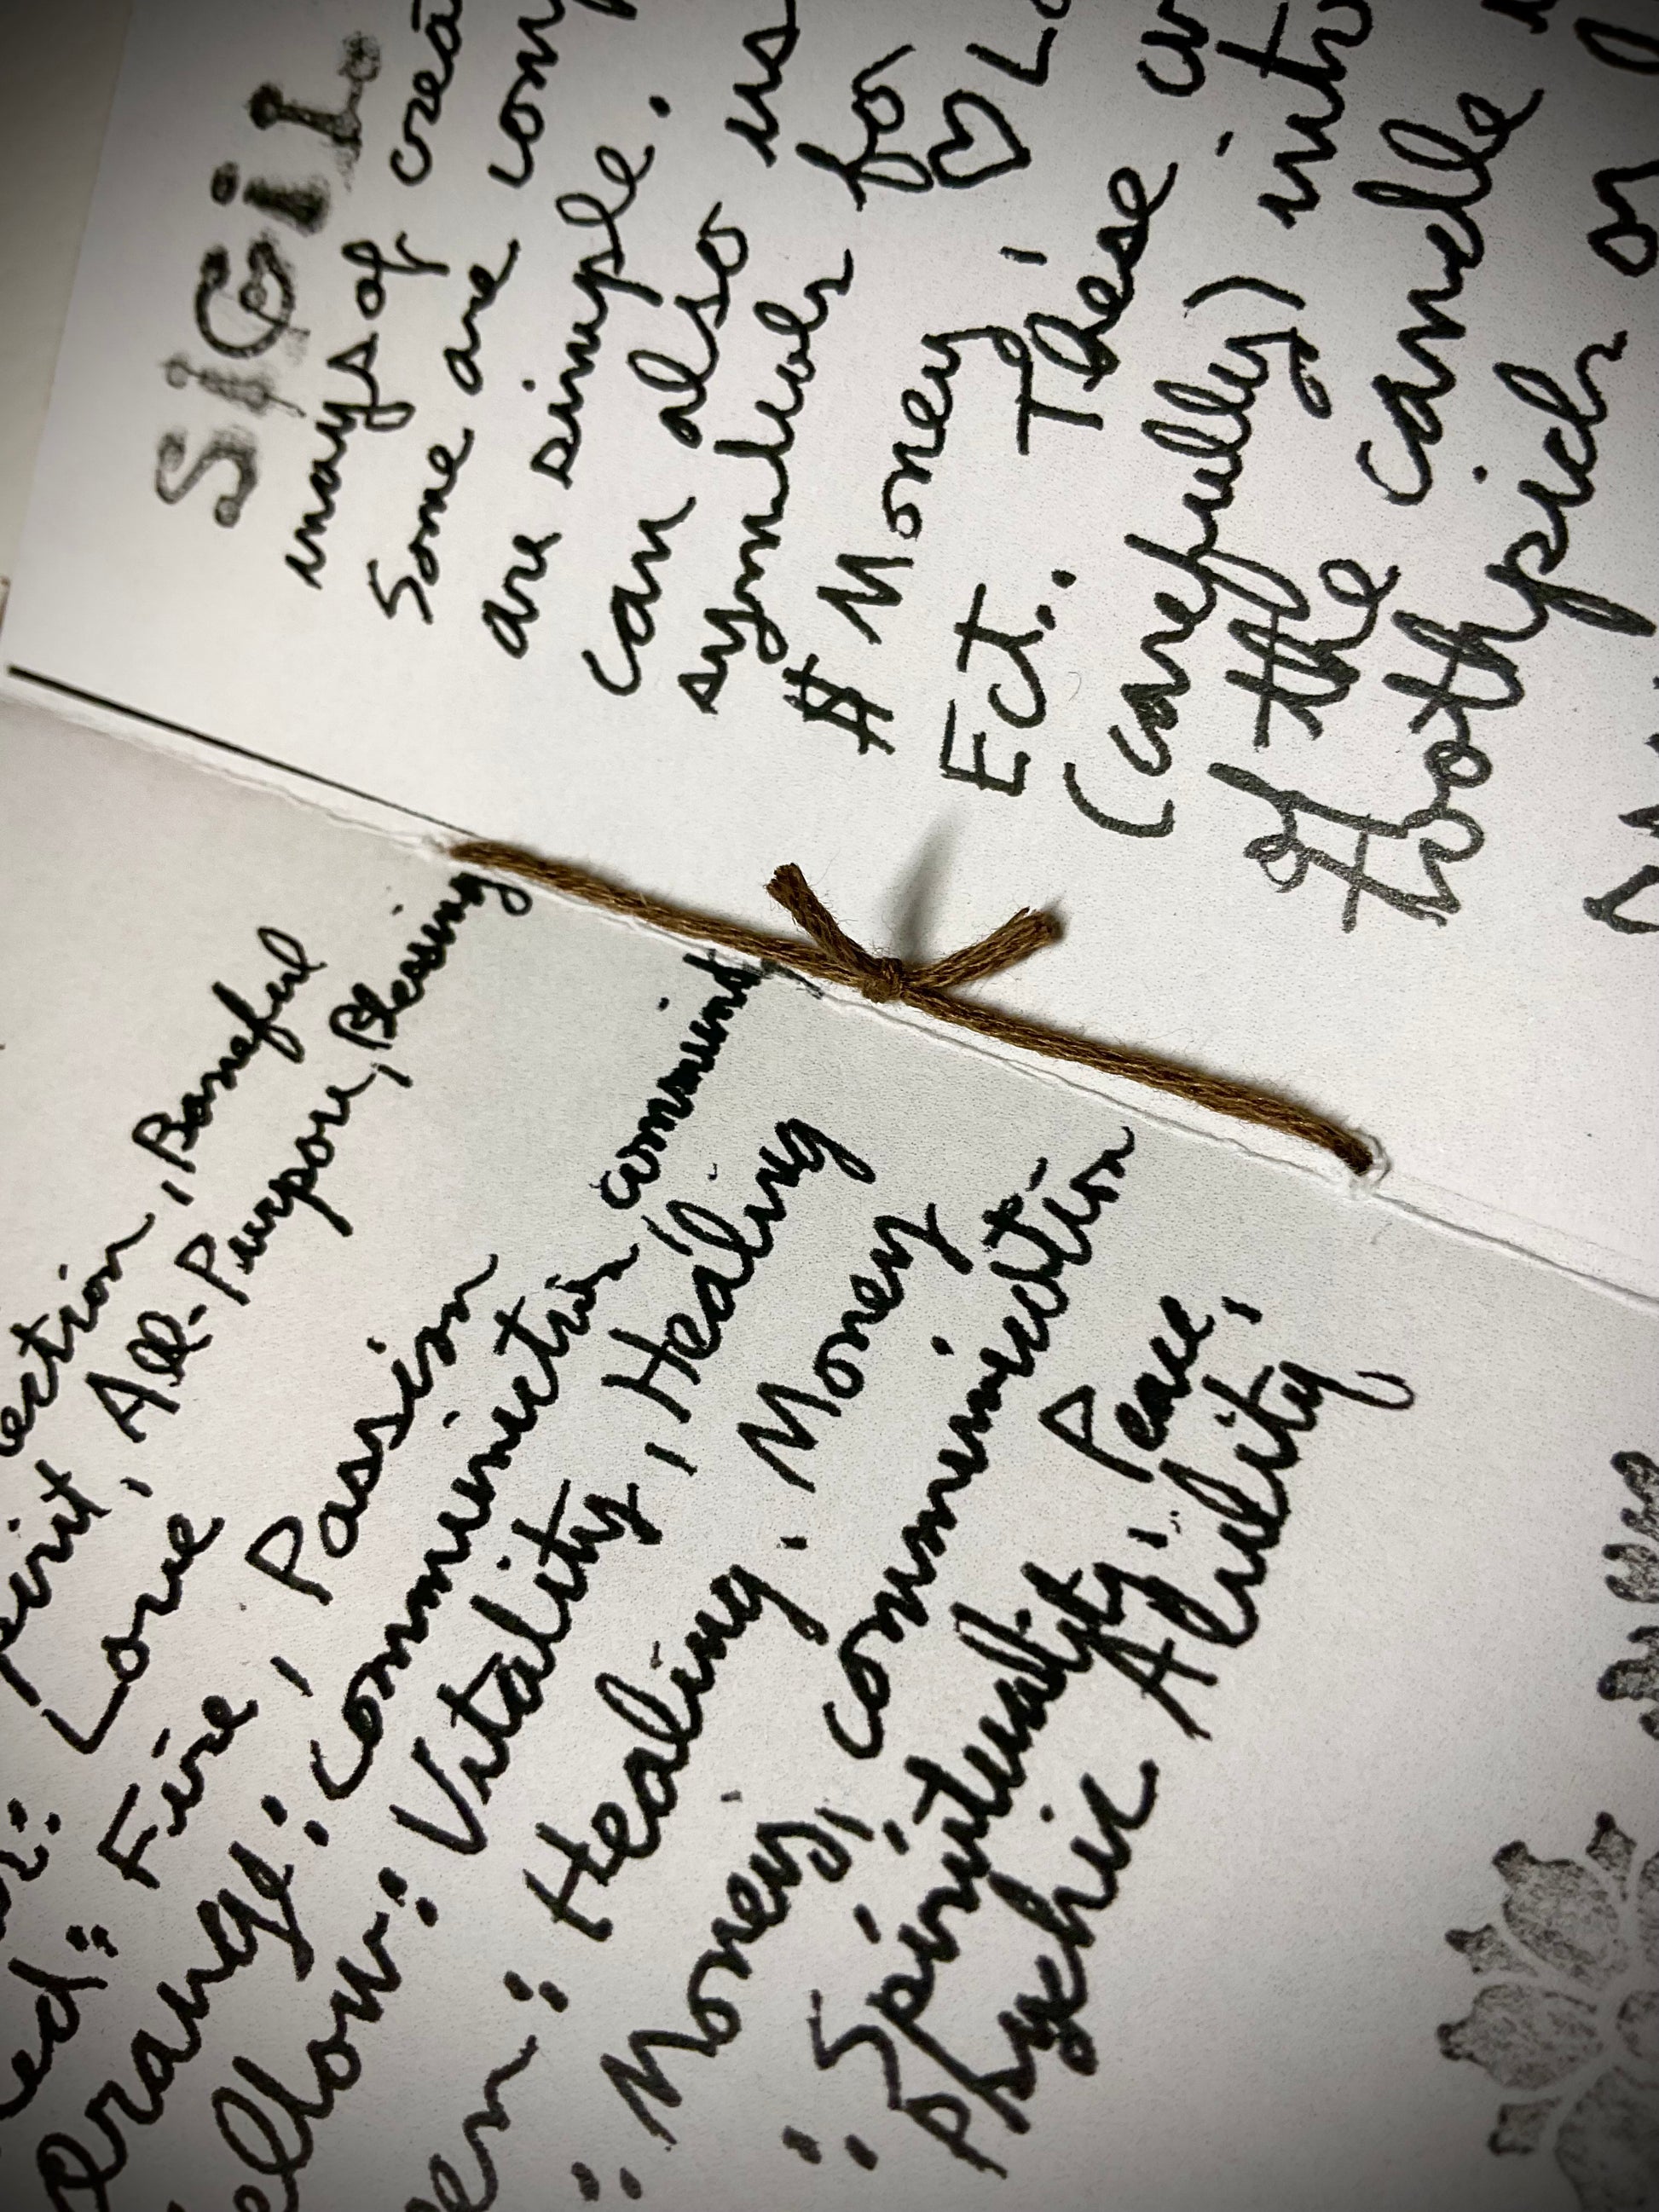 ection, Baneful
pirit, All-Purpose, Blessing
Love
ed: Fire, Passion
orange: communiction, commint
ellow: Vitality, Healing
een: Healing. Money
: Money, communiction
: Spirituality, Peace,
Psychic Ability
SiGiL
ways of crea
Some are com
are simple.
can also us
symbols for
# Money, ♡ Lo
Ect.. These
(carefully) int
of the candle
toothpick or